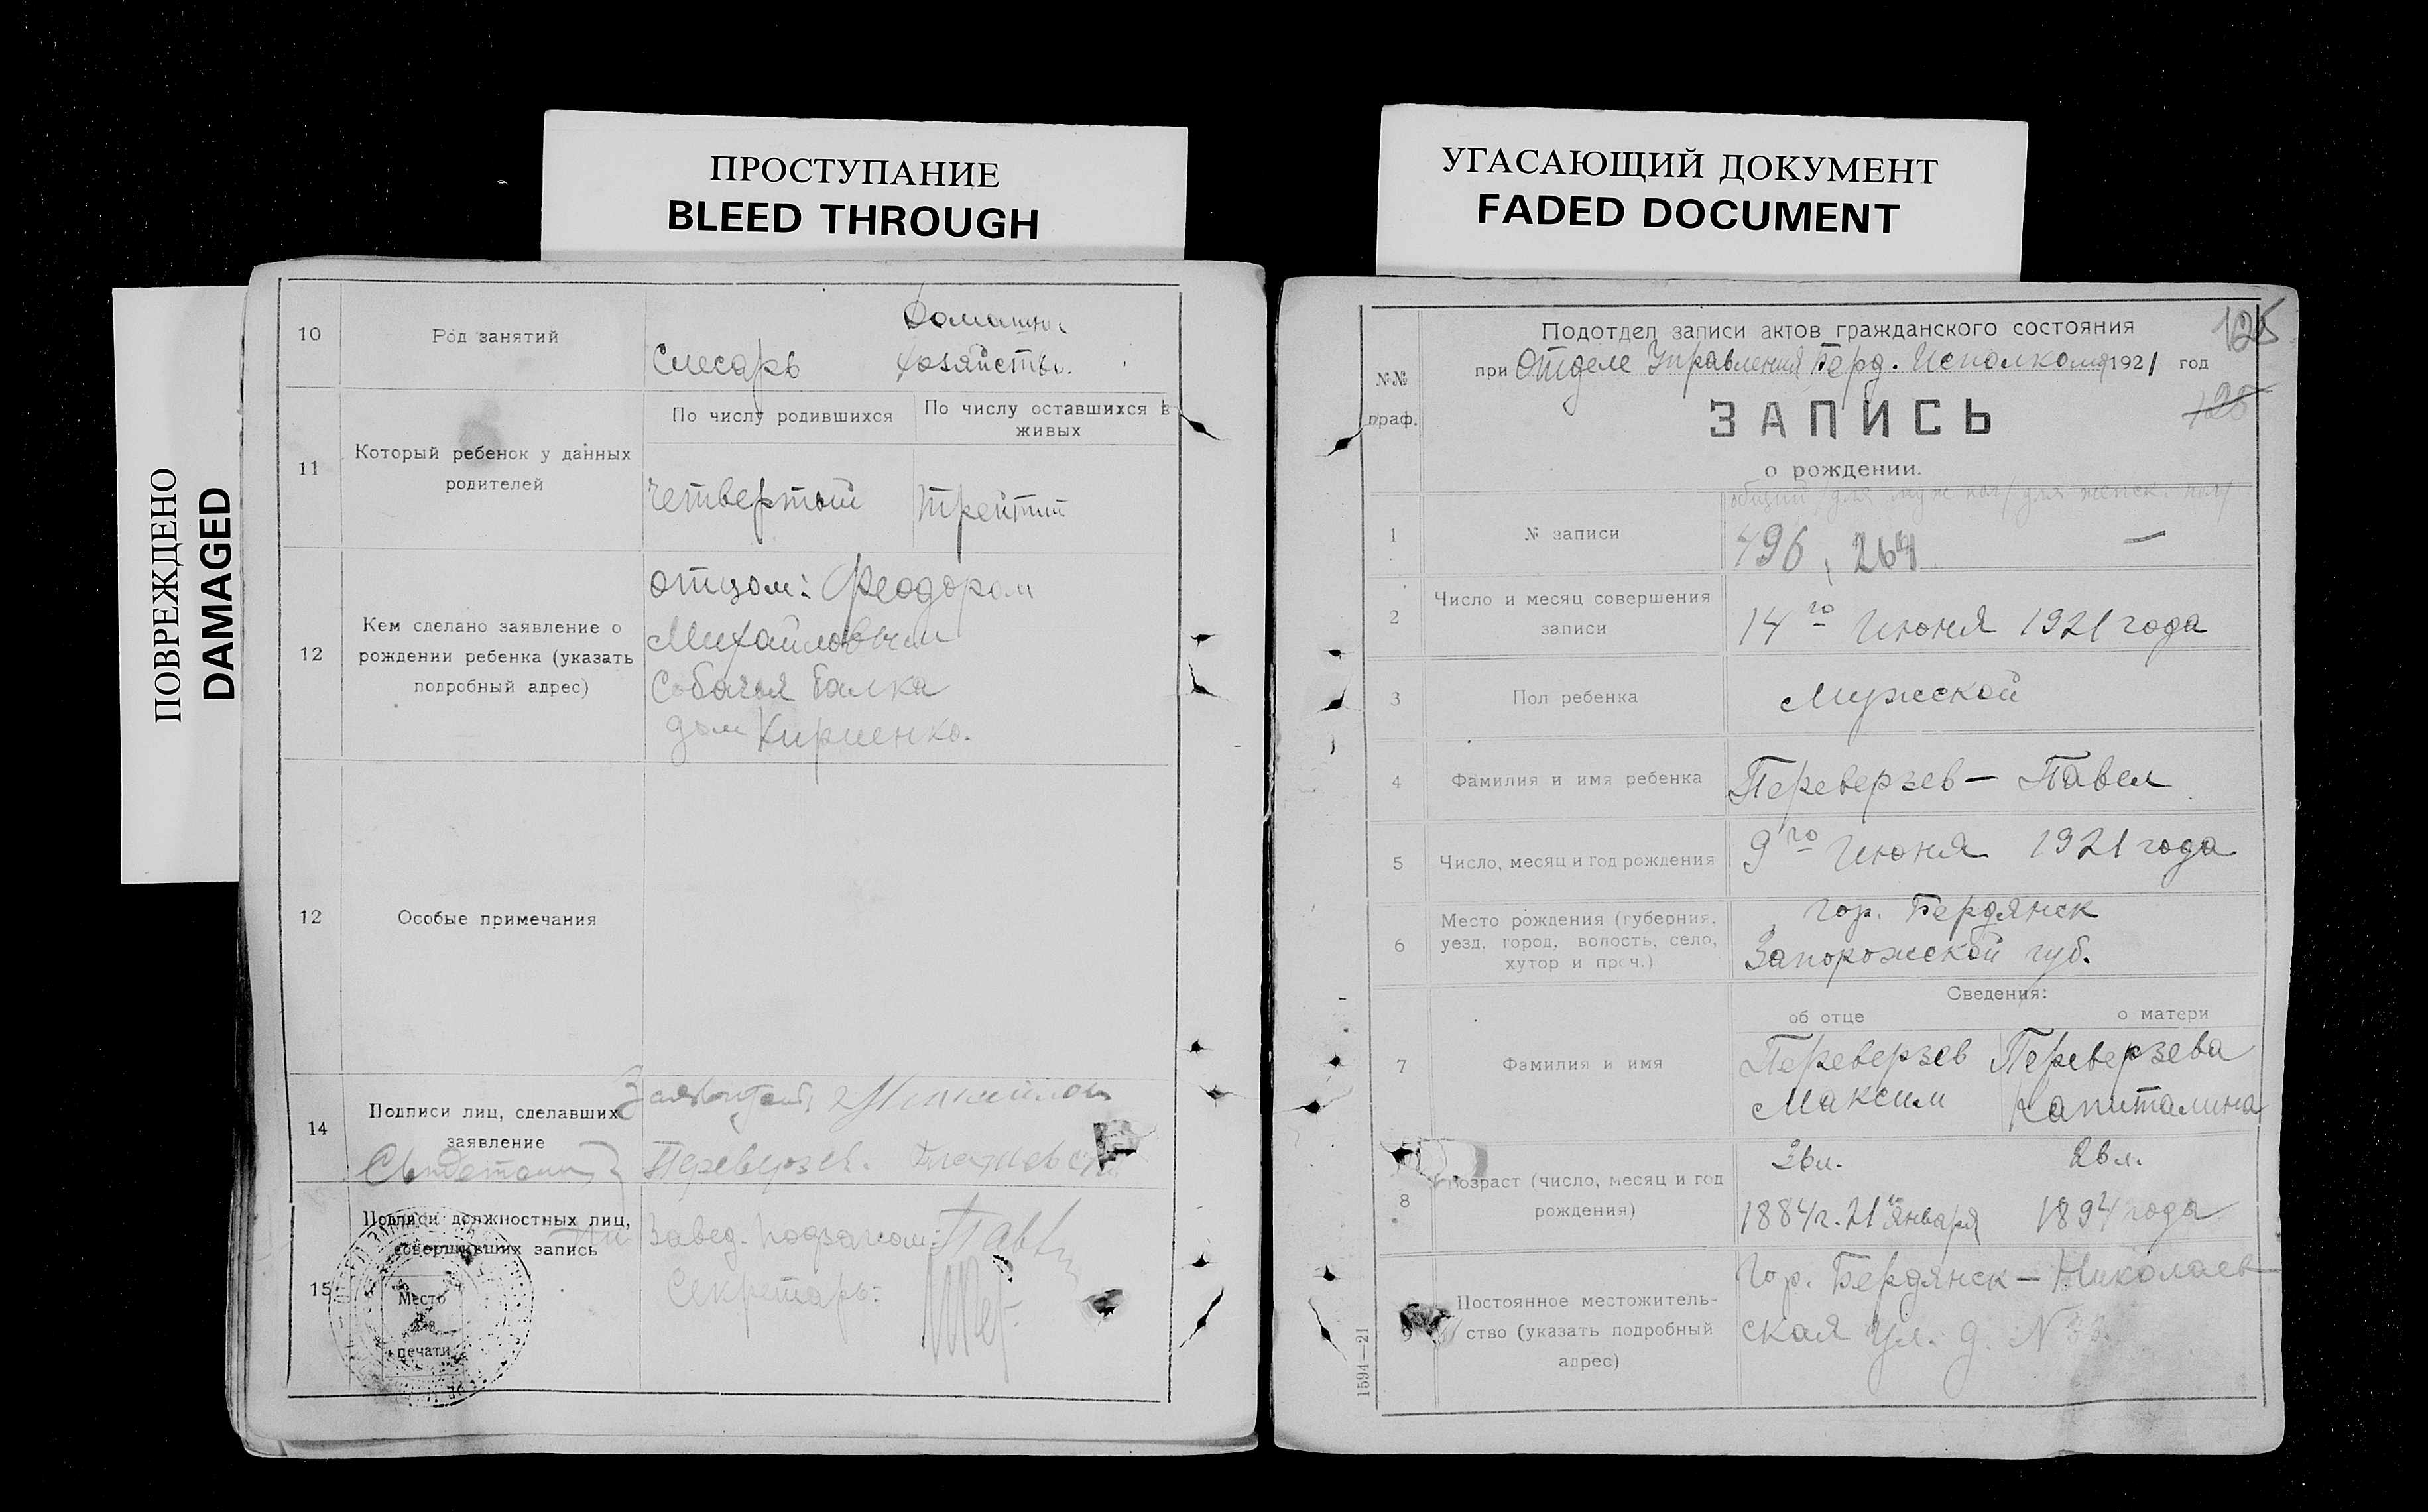 ПРОСТУПАНИЕ
BLEED THROUGH
УГАСАЮЩИЙ ДОКУМЕНТ
FADED DOCUMENT
ПОВРЕЖДЕНО
DAMAGED
10
Род занятий
Слесарь
Домашн.
хозяйство.
11
Который ребенок у данных
родителей
По числу родившихся
По числу оставшихся в
живых
четвертый
третий
12
Кем сделано заявление о
рождении ребенка (указать
подробный адрес)
отцом: Феодором
Михайловым
Собачья балка
дом Кириенко.
12
Особые примечания
14
Подписи лиц, сделавших
заявление
Свидетели
Переверзев.
15
Подписи должностных лиц,
совершивших запись
Завед. подотделом:
Секретарь:
Место
для
печати
125
Подотдел записи актов гражданского состояния
при Отделе Управления Берд. Исполкома 1921 год
128
№№
граф.
ЗАПИСЬ
о рождении.
общий /для муж пол/ для женск. пол/
1
№ записи
496, 264 —
2
Число и месяц совершения
записи
14го Июня 1921 года
3
Пол ребенка
Мужской
4
Фамилия и имя ребенка
Переверзев — Павел
5
Число, месяц и год рождения
9го Июня 1921 года
6
Место рождения (губерния,
уезд, город, волость, село,
хутор и проч.)
гор. Бердянск
Запорожской губ.
Сведения:
об отце
о матери
7
Фамилия и имя
Переверзев
Максим
Переверзева
Капиталина
8
Возраст (число, месяц и год
рождения)
36л.
1884г. 21го января
26л.
1894 года
9
Постоянное местожитель-
ство (указать подробный
адрес)
Гор. Бердянск — Николаев-
ская ул. д. №
1594—21